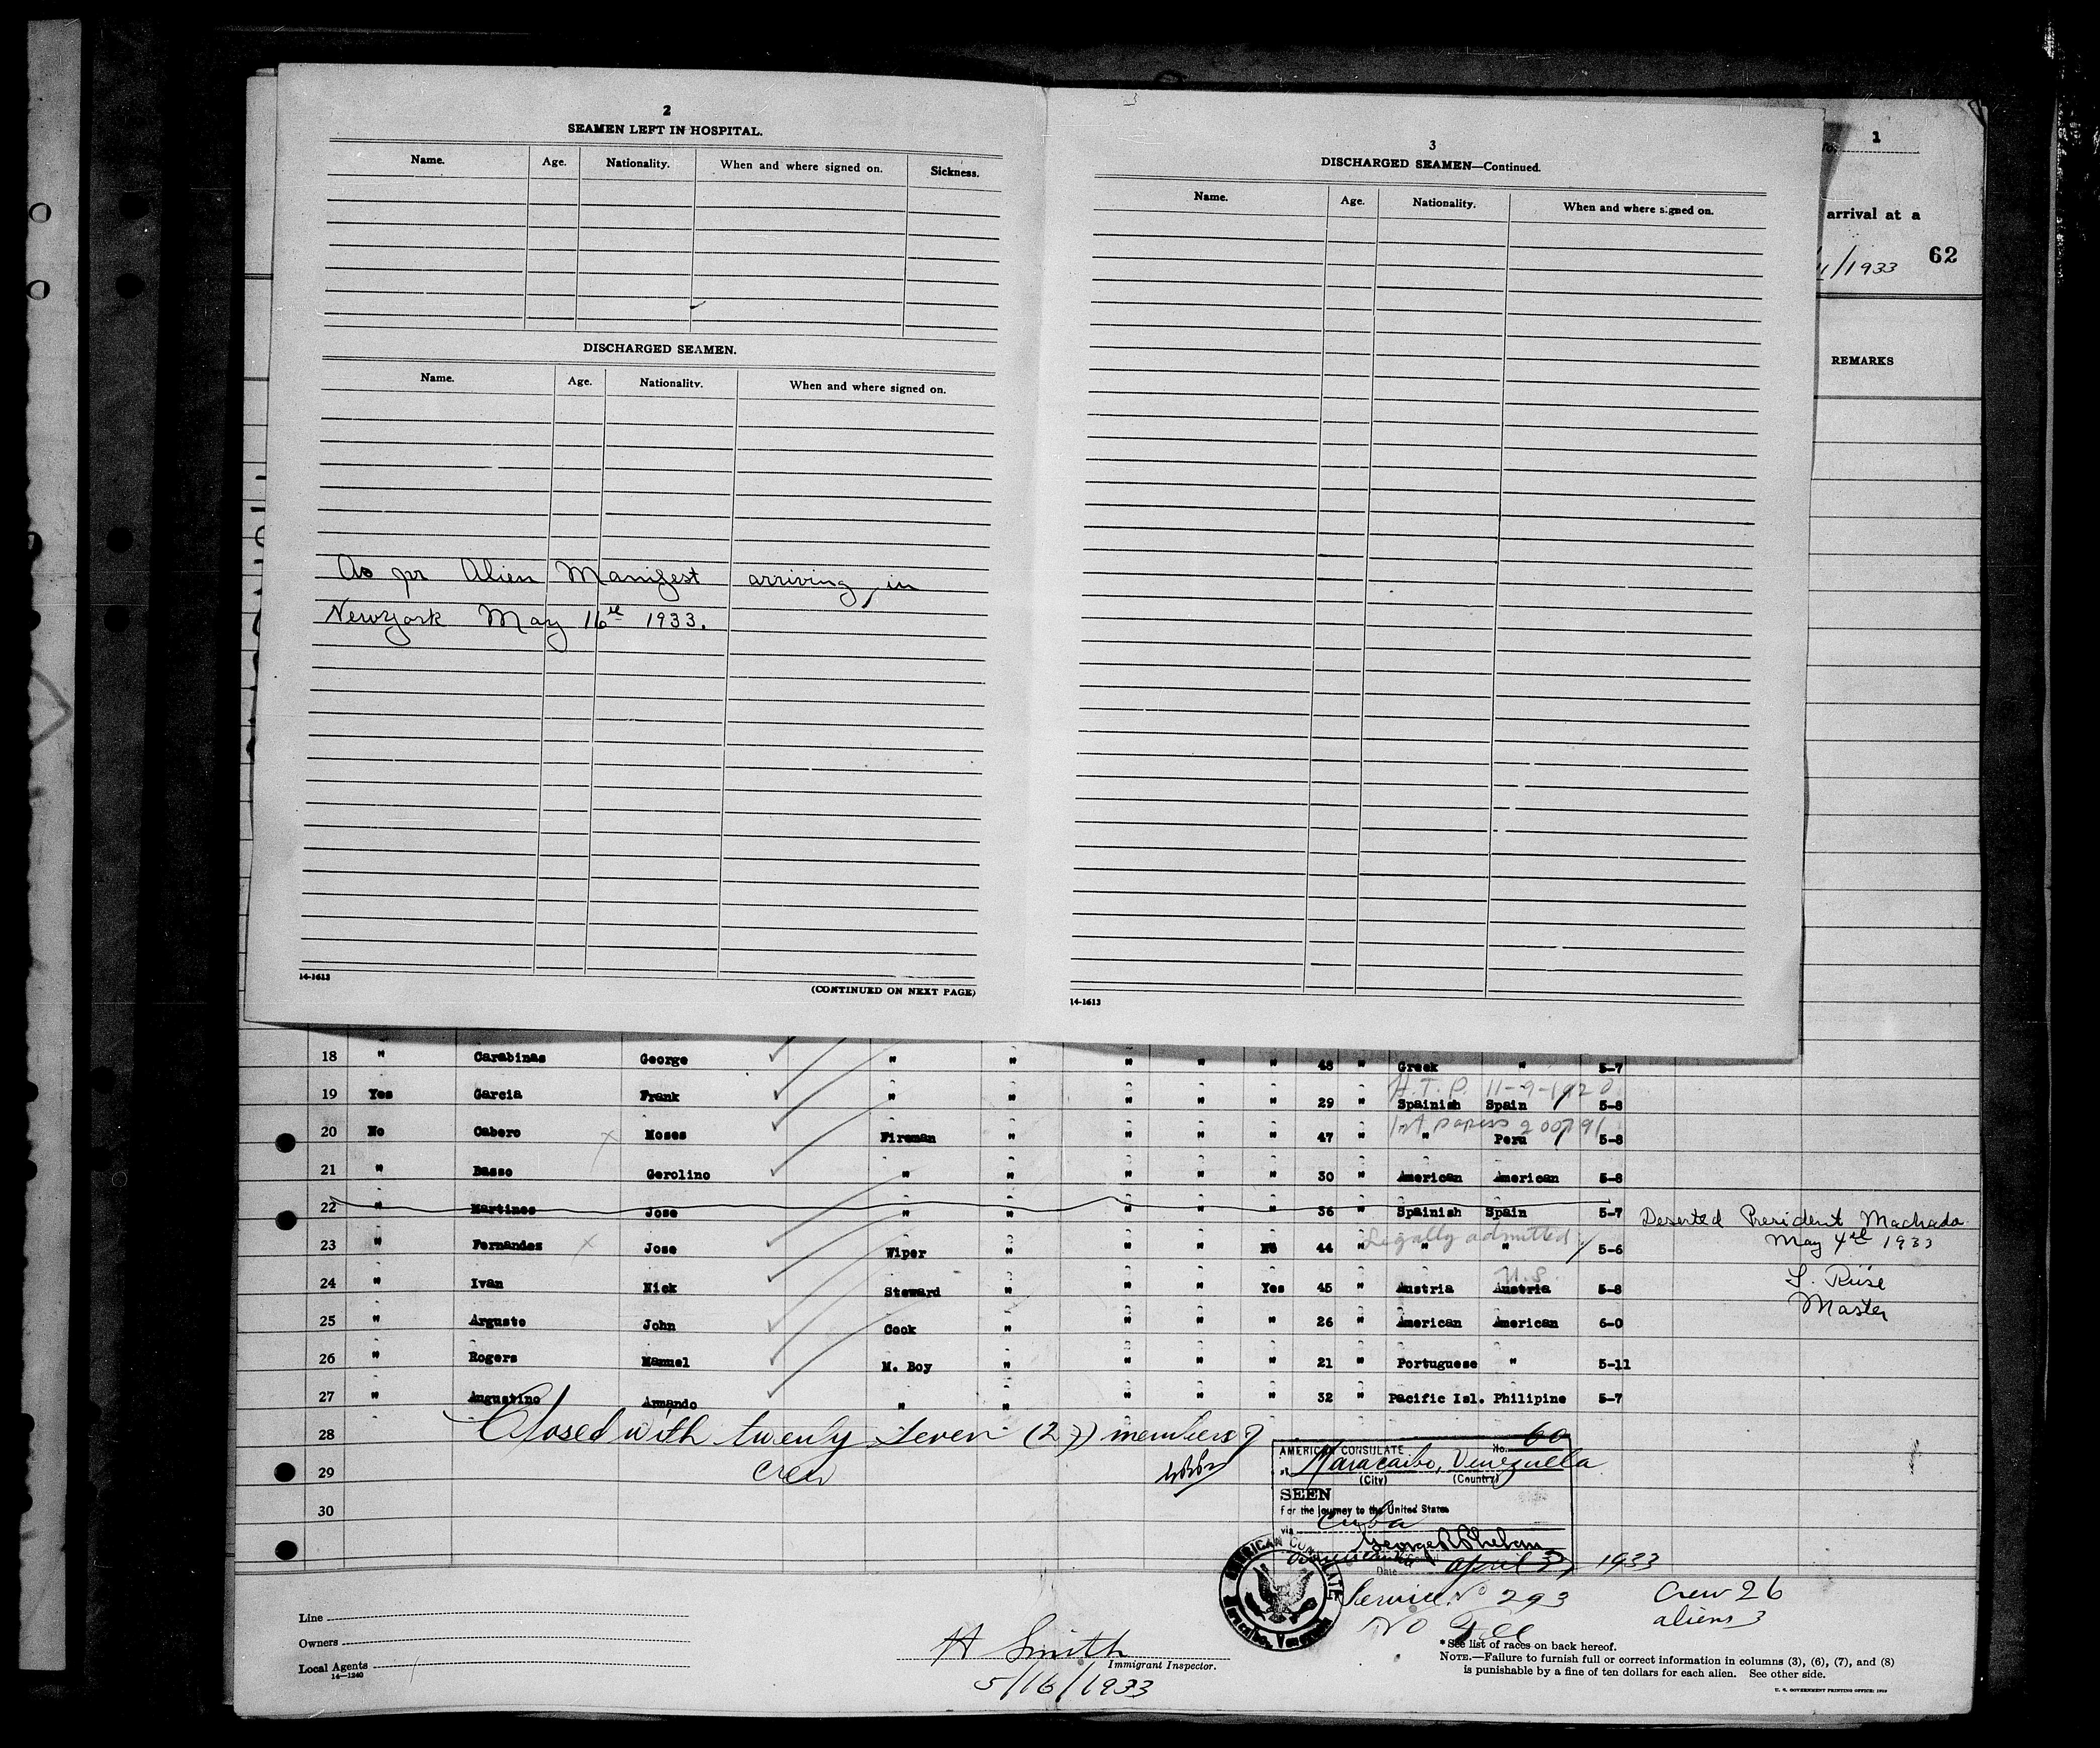 2
SEAMEN LEFT IN HOSPITAL.
Name. Age. Nationality. When and where signed on. Sickness.
DISCHARGED SEAMEN.
Name. Age. Nationality. When and where signed on.
As pr Alien Manifest arriving in
Newyork May 16th 1933.
14-1613
(CONTINUED ON NEXT PAGE)
3
DISCHARGED SEAMEN—Continued.
Name. Age. Nationality. When and where signed on.
14-1613
1
arrival at a
/1933
62
REMARKS
18 " Carabinas George " " " " " 48 " Greek " 5-7
H.T.P. 11-9-1920
19 Yes Garcia Frank " " " " " 29 " Spainish Spain 5-8
1st papers
20 No Cabero Moses Fireman " " " " 47 " " Peru 5-8
21 " Basso Gerolino " " " " " 30 " American American 5-8
22 " Martines Jose " " " " " 36 " Spainish Spain 5-7
Deserted President Machado
May 4th 1933
Legally admitted
23 " Fernandez Jose Wiper " " " No 44 " " " 5-6
U.S.
24 " Ivan Nick Steward " " " Yes 45 " Austria Austria 5-8
Master
25 " Argusto John Cook " " " " 26 " American American 6-0
26 " Rogers Manuel M. Boy " " " " 21 " Portuguese " 5-11
27 " Augustino Armando " " " " " 32 " Pacific Isl. Philipine 5-7
28 Closed with twenty seven (27) members of
29 crew
30
AMERICAN CONSULATE No. 60
at Maracaibo, Venezuela
(City) (Country)
SEEN
For the journey to the United States
via Cuba
Date April 1933
AMERICAN CONSULATE
Maracaibo, Venezuela
Service No 293
No Fee
Crew 26
aliens 3
Line
Owners
Local Agents
14-1240
H Smith
Immigrant Inspector.
5/16/1933
*See list of races on back hereof.
NOTE.—Failure to furnish full or correct information in columns (3), (6), (7), and (8)
is punishable by a fine of ten dollars for each alien. See other side.
U. S. GOVERNMENT PRINTING OFFICE: